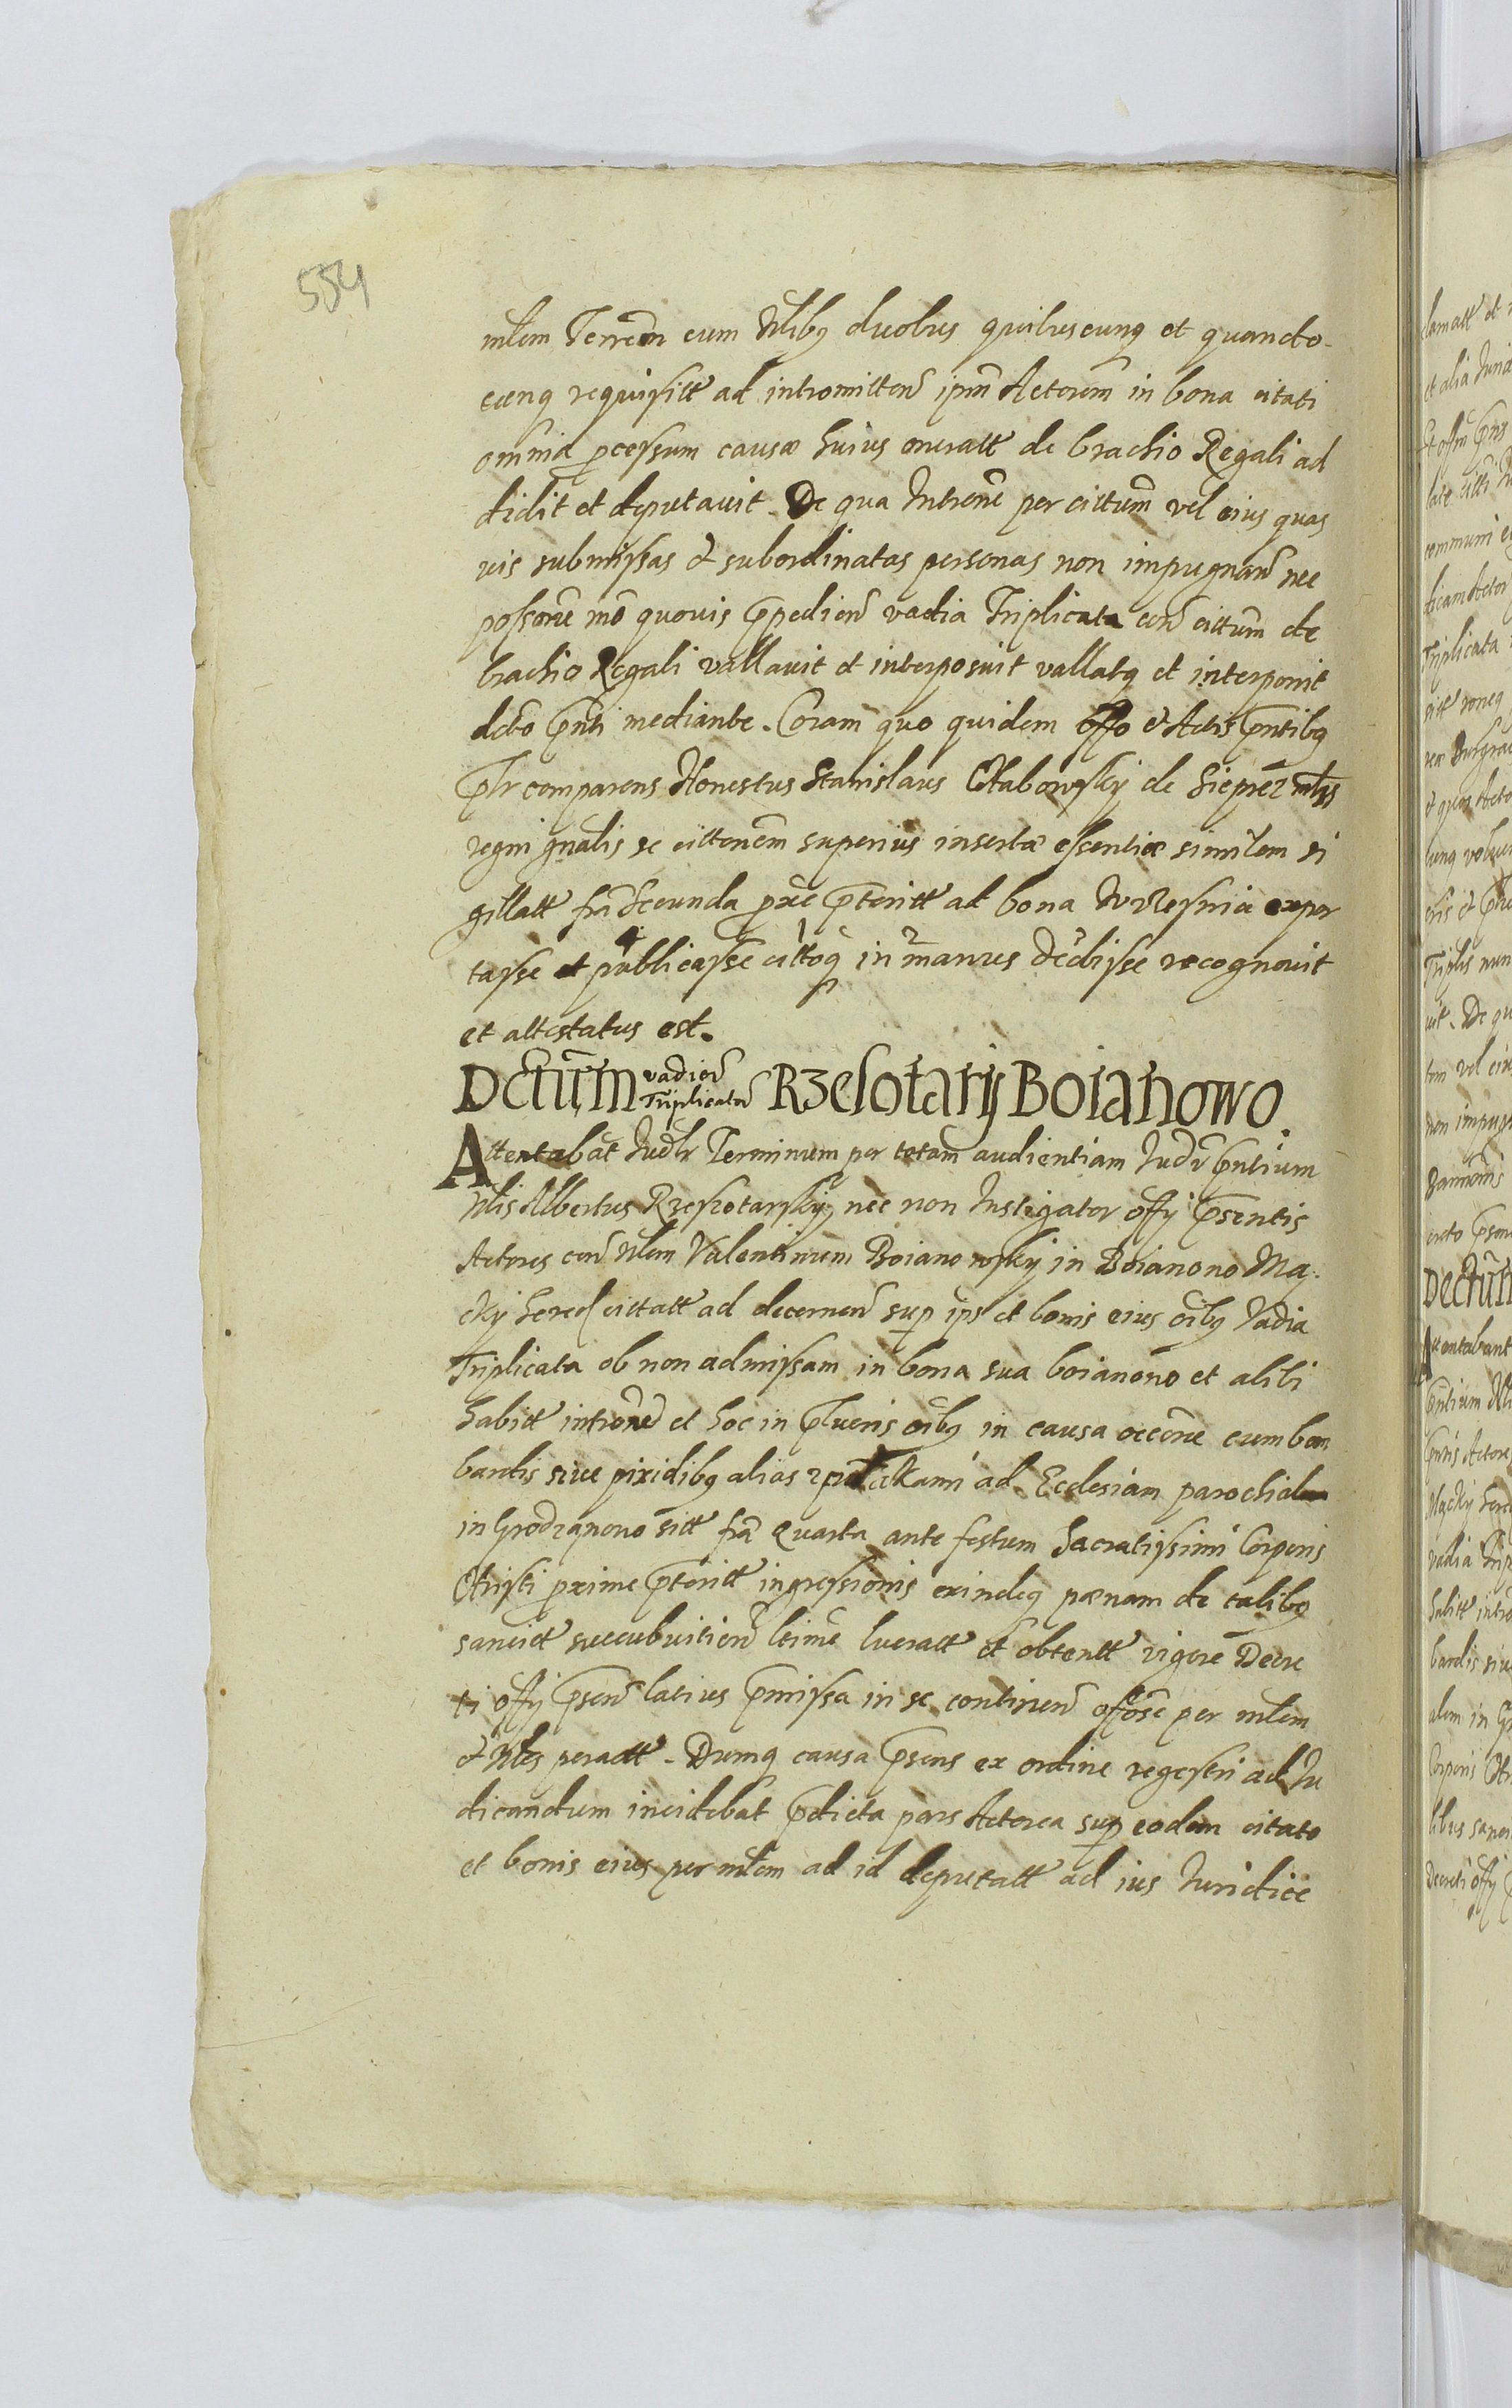 554
mlem Terrem cum Nlibq duobus quibuscunq et quando-
cunq requisitt ad intromitten ipm Actorem in bona citati
omnia pcessum causæ huius oneratt de brachio Regali ad
didit et deputavit. De qua Introne per cittum vel eius quas
vis submissas & subordinatas personas non impugnan nec
possone mo quovis ppedien vadia Triplicata con cittum de
brachio Regali vallavit et interposuit vallatq et interponit
dcto pnti mediante. Coram quo quidem offo & Actis pntibq
plr comparens Honestus Stanislaus Chabowsky de Sieprcz mlis
regni gnalis se cittonem superius insertæ essentiæ similem si
gillatt fra Secunda pxe pteritt ad bona Wrzesnia expor
tasse et publicasse cittoq in manus dedisse recognovit
et attestatus est.
Dctum vadior Triplicator Rzesotarij Boianowo.
Attentabat Iudlr Terminum per totam audientiam Iudr pntium
Nlis Albertus Rzeszotarsky, nec non Instigator offy psentis
Actores con Nlem Valentinum Boianowsky in Boianowo Ma-
cky hered cittatt ad decernen sup ipo et bonis eius oibq Vadia
Triplicata ob non admissam in bona sua boianowo et alibi
habitt introne et hoc in pluris oibq in causa occone cum bom
bardis sive pixidibq alias z ad Ecclesiam parochialem
in Grodzanowo sitt fra Quarta ante festum Sacratissimi Corporis
Christi pxime pteritt ingressionis exindeq pænam de talibq
sancitt succubuitien ltime lucratt et obtentt vigore Decre
ti offy psen latius pmissa in se continen offose per mlem
& Nles peractt. Dumq causa psens ex ordine regestri ad Iu
dicandum incidebat pdicta pars Actorea sup eodem citato
et bonis eius per mlem ad id deputatt ad ius Iuridice